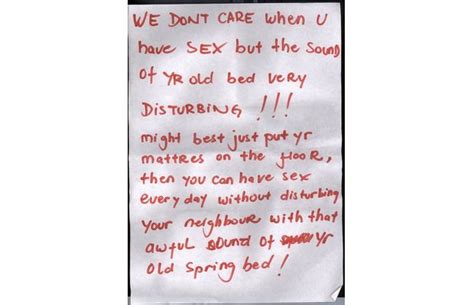 WE DONT CARE when U
have SEX but the SOUND
of YR old bed very
DISTURBING !!!
might best just put yr
mattres on the flooR,
then you can have sex
every day without disturbing
your neighbour with that
awful sound of yr
old spring bed!